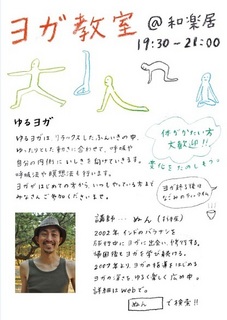 ヨガ教室 @和楽居
19:30〜21:00
ゆるヨガ
ゆるヨガは、リラックスしたふんいきの中、
ゆったりとした動きに合わせて、呼吸や
自分の内側にいしきを向けていきます。
呼吸法や瞑想法も行います。
ヨガがはじめての方から、いつもやっている方まで
みなさんご参加くださいませ。
体がかたい方
大歓迎!!
変化をたのしもう♪
ヨガ終了後は
なごみのティータイム
講師… ぬん
2002年 インドのバラナシを
旅行中にヨガに出会い、
帰国後もヨガを学び続ける。
2007年より、ヨガの指導をはじめる
ヨガの深さを、ゆるく楽しく広め中。
詳細はwebで。
ぬん で検索!!